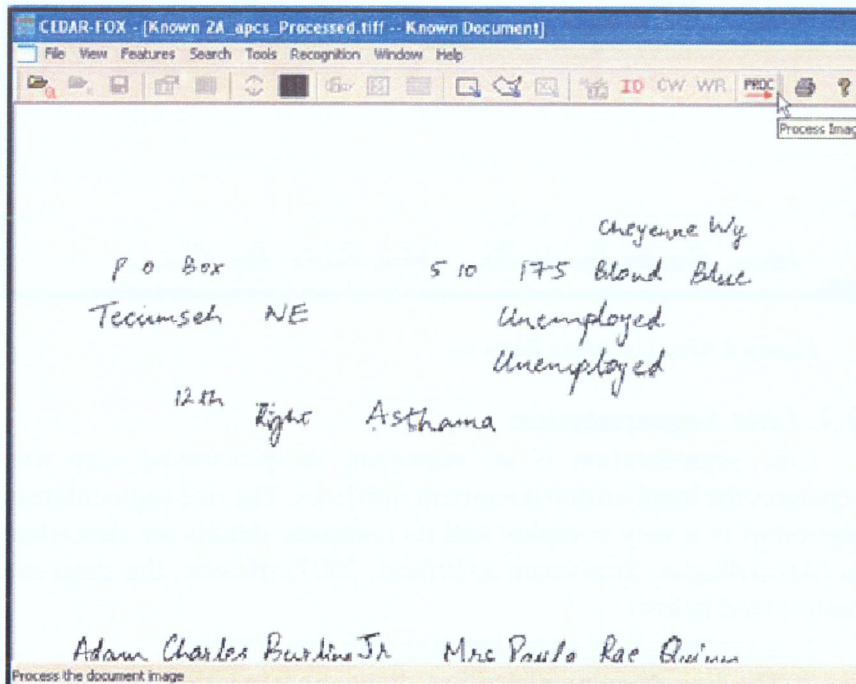 CEDAR-FOX - [Known 2A_apcs_Processed.tiff -- Known Document]
File View Features Search Tools Recognition Window Help
ID CW WR PROC ?
Process Imag
Cheyenne Wy
P O Box 5 10 175 Blond Blue
Tecumseh NE Unemployed
Unemployed
12th Right Asthama
Adam Charles Burline Jr Mrs Paula Rae Quinn
Process the document image